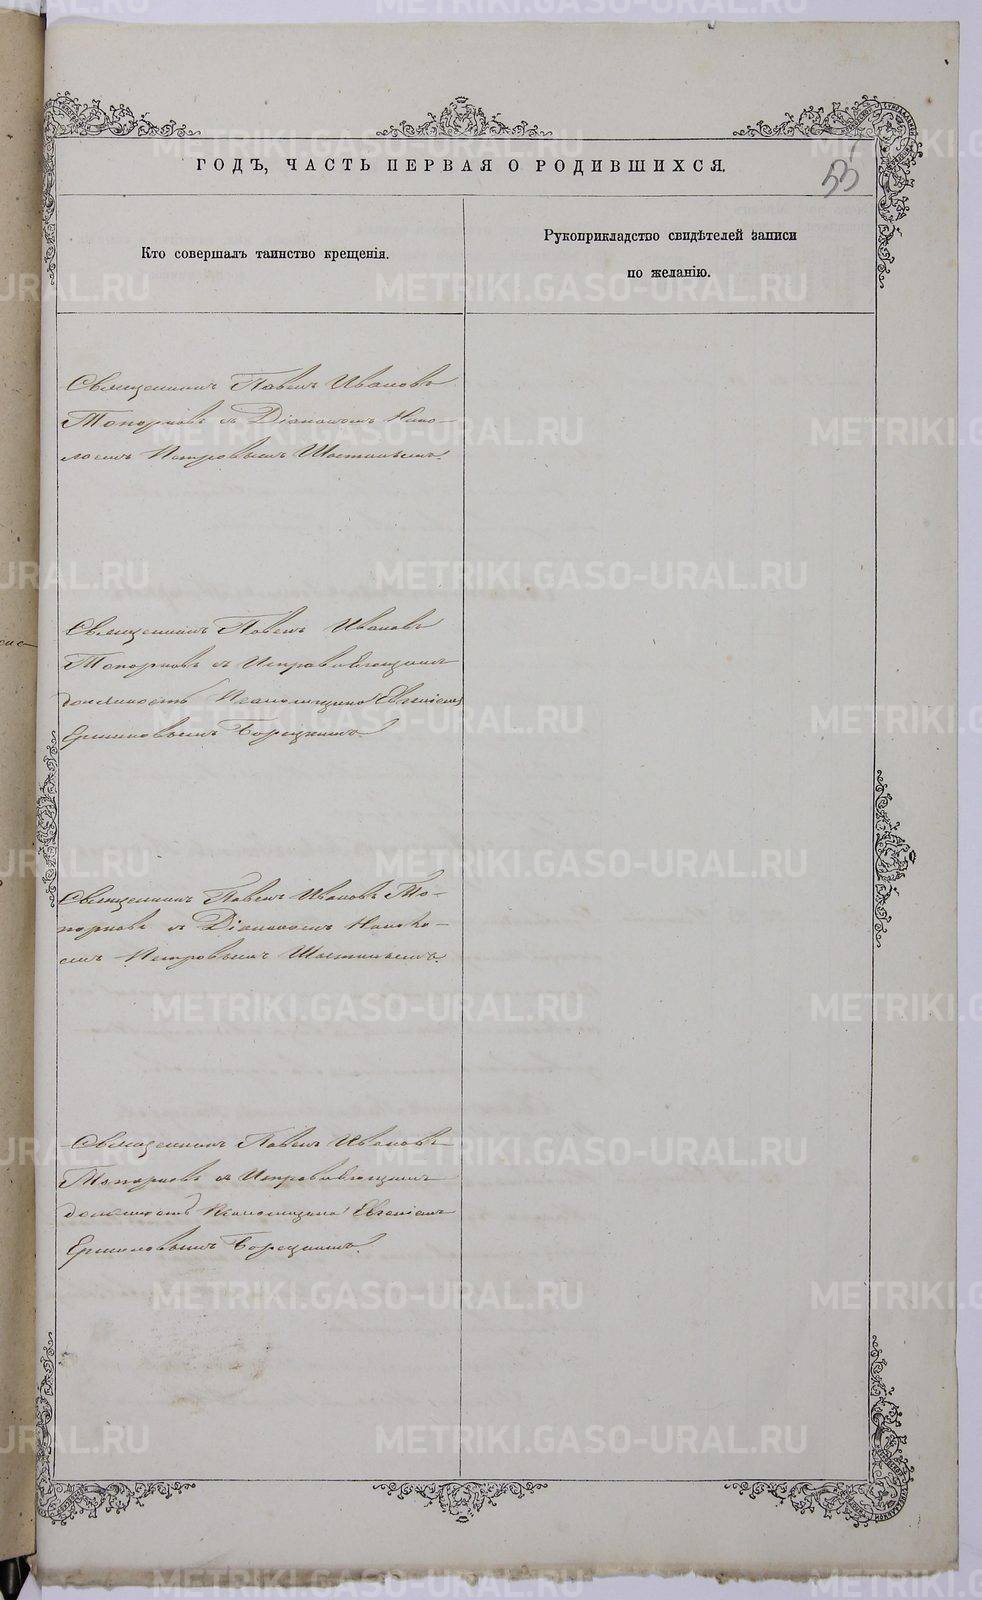 ГОДЪ, ЧАСТЬ ПЕРВАЯ О РОДИВШИХСЯ.
53
Кто совершалъ таинство крещенія.
Рукоприкладство свидѣтелей записи
по желанію.
Священникъ Павелъ Ивановъ
Топорковъ съ Діакономъ Нико-
лаемъ Петровымъ
Священникъ Павелъ Ивановъ
Топорковъ съ Исправляющимъ
должность Псаломщика Евгеніемъ
Ермиловымъ Борецкимъ.
Священникъ Павелъ Ивановъ То-
порковъ съ Діакономъ Никола-
емъ Петровымъ
Священникъ Павелъ Ивановъ
Топорковъ съ Исправляющимъ
должность Псаломщика Евгеніемъ
Ермиловымъ Борецкимъ.
METRIKI.GASO-URAL.RU